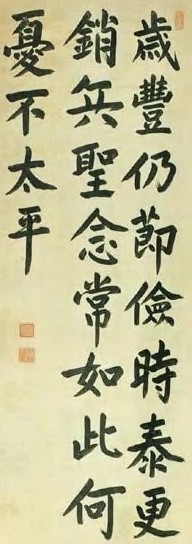 歲豐仍節儉時泰更
銷兵聖念常如此何
憂不太平